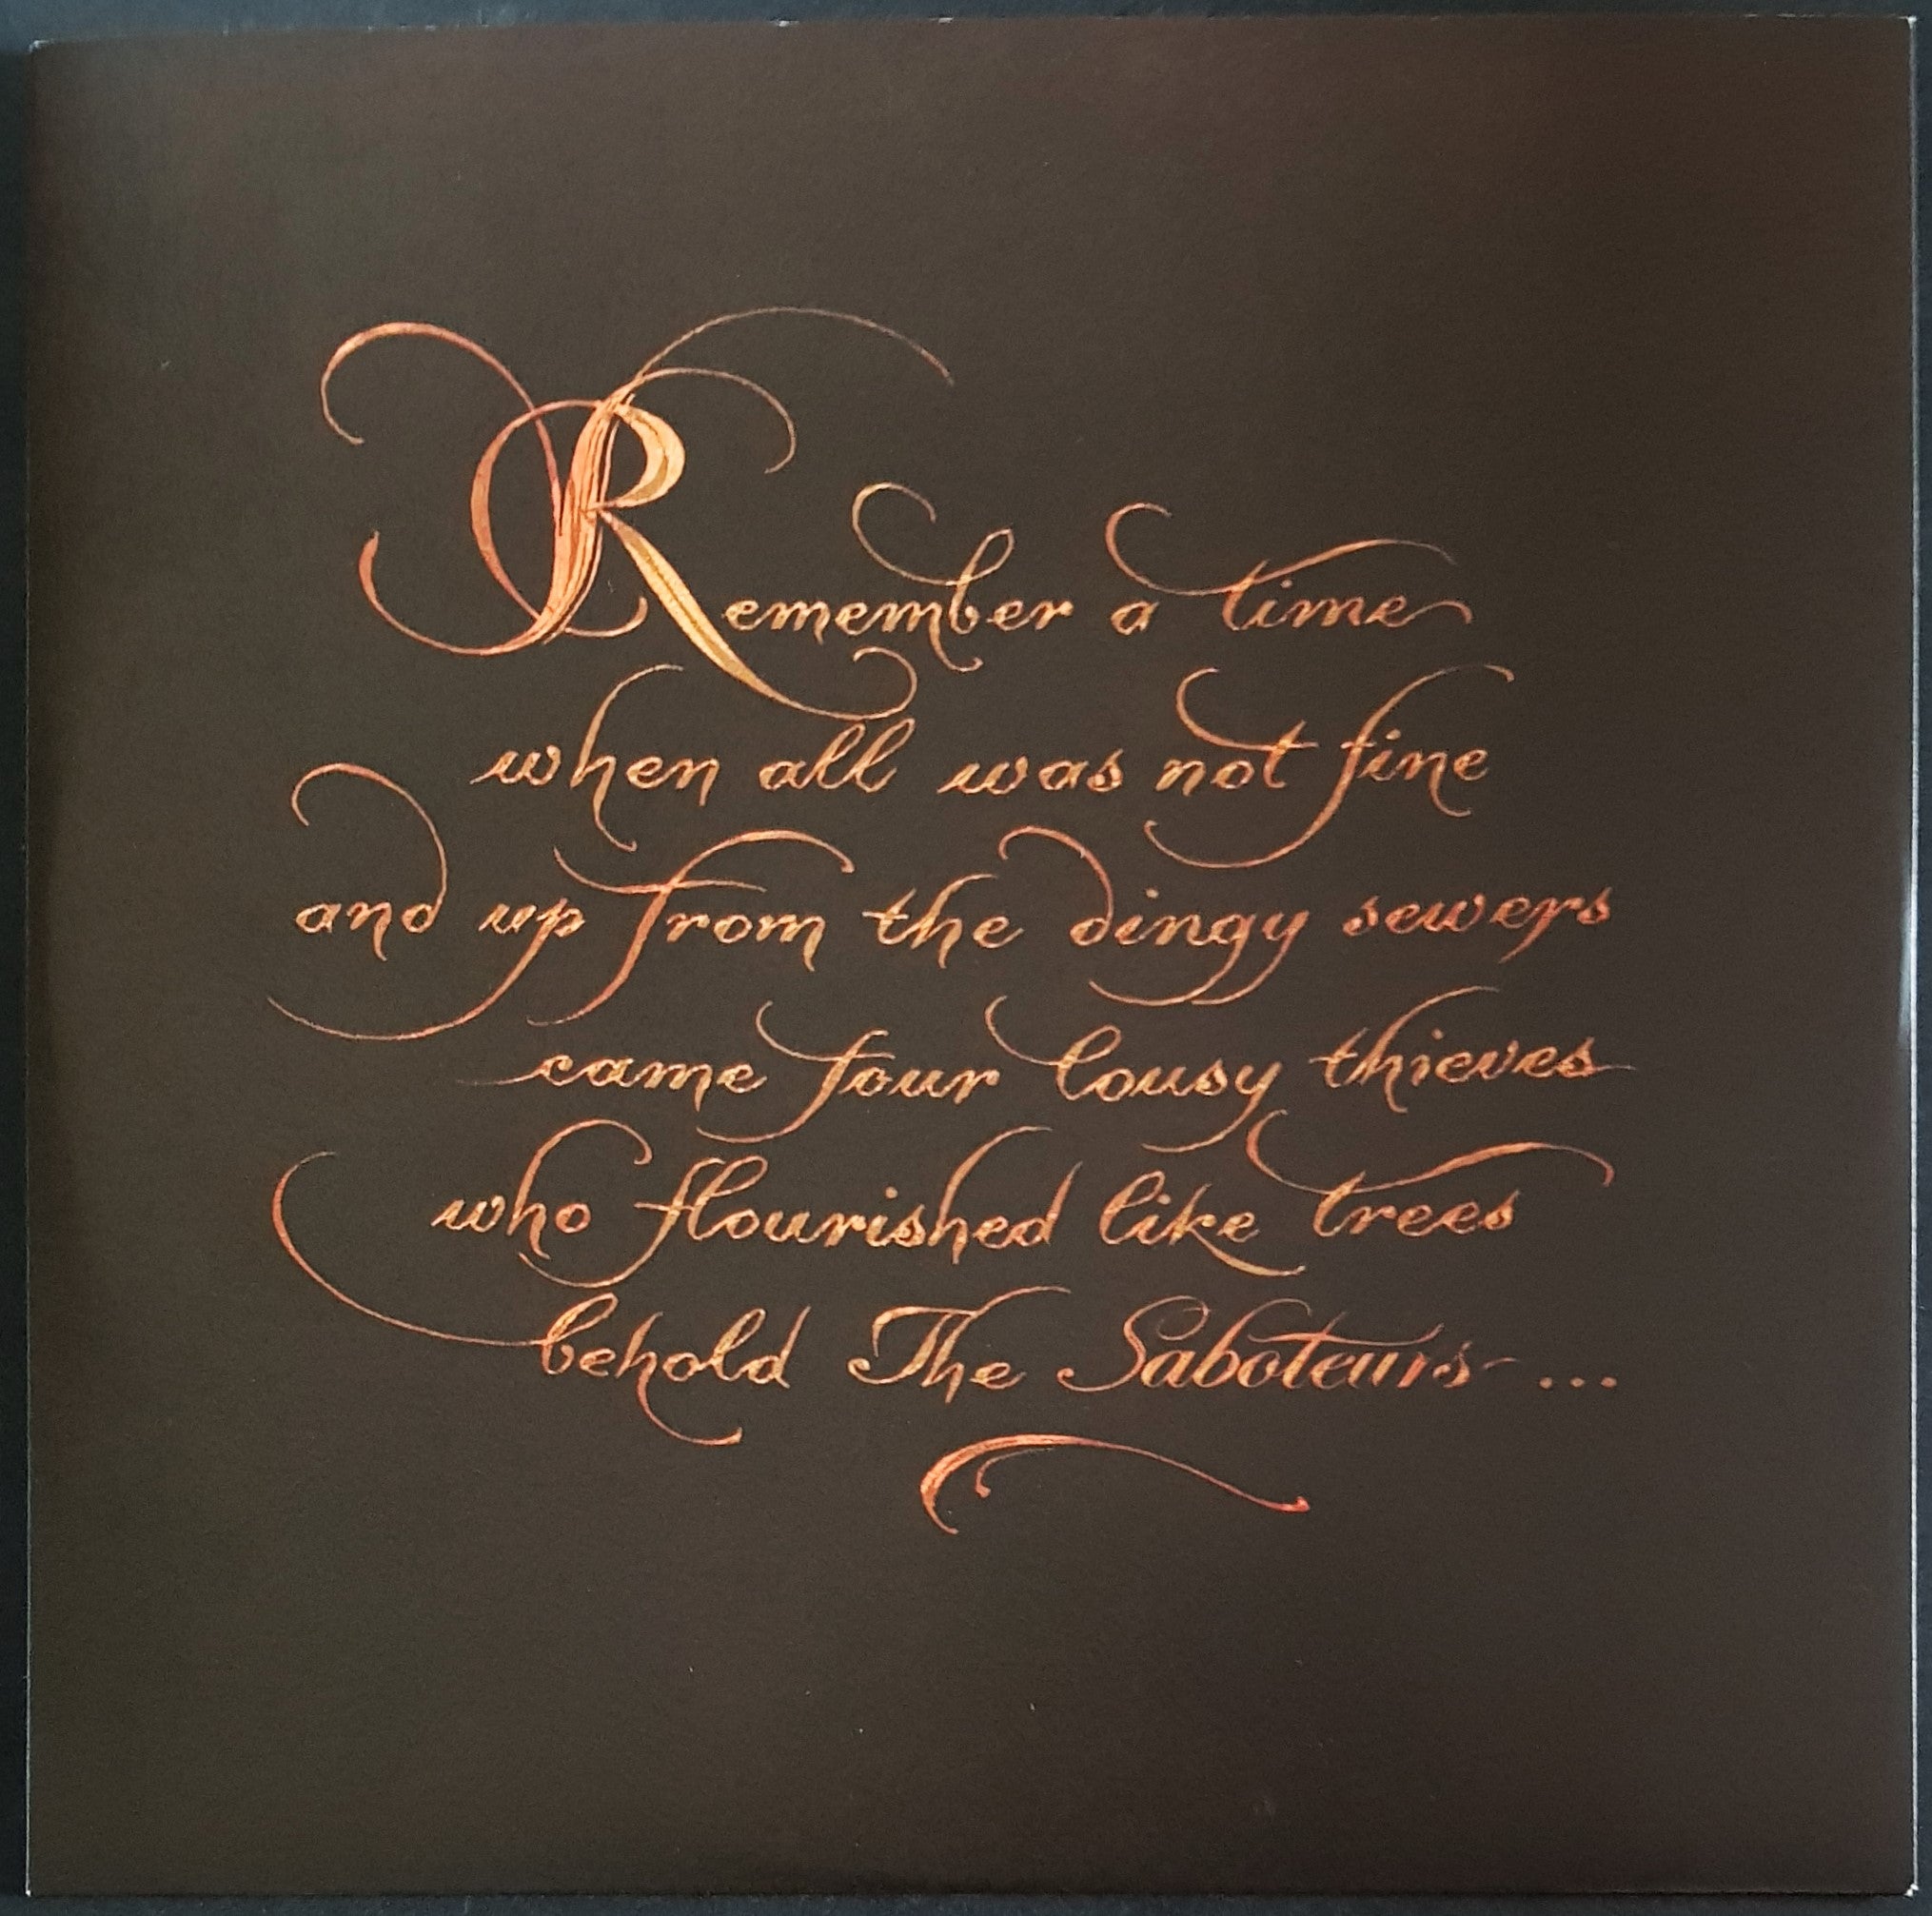 Remember a time
when all was not fine
and up from the dingy sewers
came four lousy thieves
who flourished like trees
behold The Saboteurs...